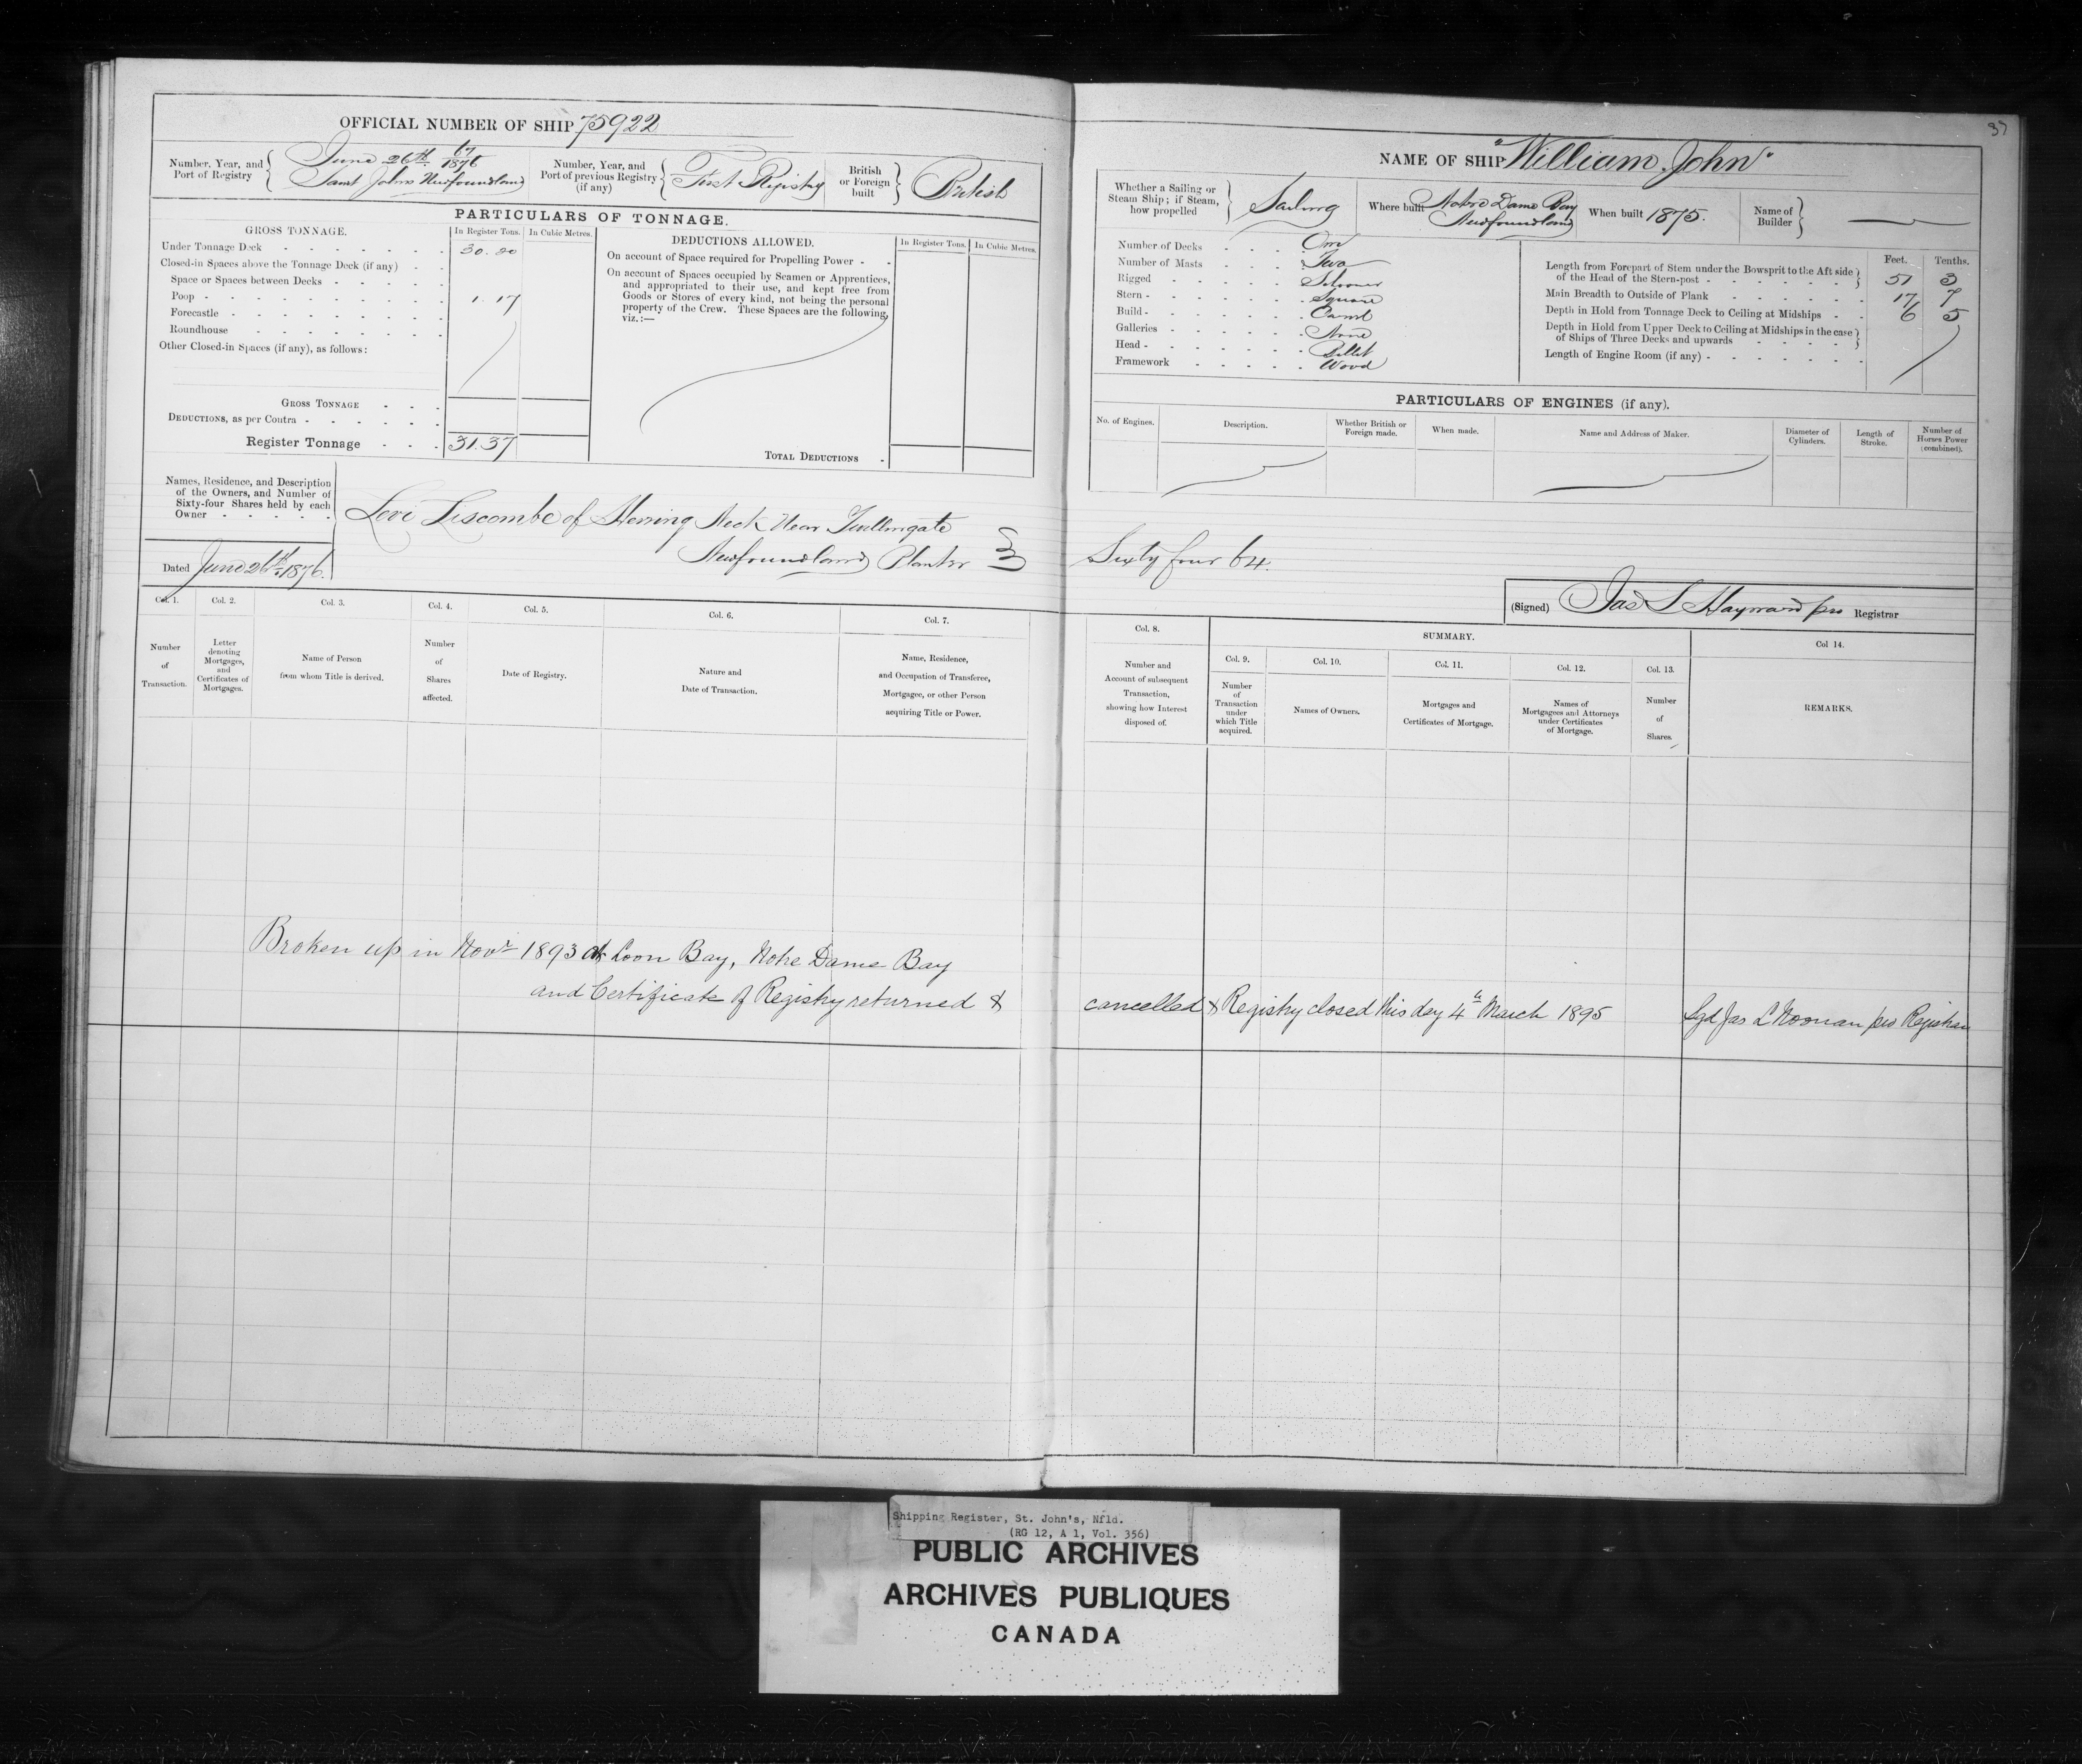 37
OFFICIAL NUMBER OF SHIP 75922
Number, Year, and Port of Registry
June 26th 67/1876
Saint Johns Newfoundland
Number, Year, and Port of previous Registry (if any)
First Registry
British or Foreign built
British
PARTICULARS OF TONNAGE.
GROSS TONNAGE.
In Register Tons.
In Cubic Metres.
Under Tonnage Deck - - - - - - 30.20
Closed-in Spaces above the Tonnage Deck (if any) - -
Space or Spaces between Decks - - - - -
Poop - - - - - - - - 1.17
Forecastle - - - - - - -
Roundhouse - - - - - -
Other Closed-in Spaces (if any), as follows:
GROSS TONNAGE - - -
DEDUCTIONS, as per Contra - - - - - -
Register Tonnage - - - 31.37
DEDUCTIONS ALLOWED.
In Register Tons.
In Cubic Metres.
On account of Space required for Propelling Power - -
On account of Spaces occupied by Seamen or Apprentices,
and appropriated to their use, and kept free from
Goods or Stores of every kind, not being the personal
property of the Crew. These Spaces are the following,
viz.:—
TOTAL DEDUCTIONS -
Names, Residence, and Description
of the Owners, and Number of
Sixty-four Shares held by each
Owner - - - - -
Levi Liscombe of Herring Neck Near Twillingate
Newfoundland Planter
Dated June 26th 1876.
NAME OF SHIP "William John"
Whether a Sailing or Steam Ship; if Steam, how propelled
Sailing
Where built
Notre Dame Bay
Newfoundland
When built 1875.
Name of Builder
Number of Decks - - - One
Number of Masts - - - Two
Rigged - - - - - Schooner
Stern - - - - - - Square
Build - - - - - - Carvel
Galleries - - - - - None
Head - - - - - - Billet
Framework - - - - - Wood
Feet. Tenths.
Length from Forepart of Stem under the Bowsprit to the Aft side
of the Head of the Stern-post - - - - - - 51 3
Main Breadth to Outside of Plank - - - - - 17 7
Depth in Hold from Tonnage Deck to Ceiling at Midships - - 6 5
Depth in Hold from Upper Deck to Ceiling at Midships in the case
of Ships of Three Decks and upwards - - - -
Length of Engine Room (if any) - - - - - -
PARTICULARS OF ENGINES (if any).
No. of Engines.
Description.
Whether British or Foreign made.
When made.
Name and Address of Maker.
Diameter of Cylinders.
Length of Stroke.
Number of Horses Power (combined).
Sixty four 64.
(Signed) Jas L Hayward pro Registrar
Col. 1.
Number of Transaction.
Col. 2.
Letter denoting Mortgages, and Certificates of Mortgages.
Col. 3.
Name of Person from whom Title is derived.
Col. 4.
Number of Shares affected.
Col. 5.
Date of Registry.
Col. 6.
Nature and Date of Transaction.
Col. 7.
Name, Residence, and Occupation of Transferee, Mortgagee, or other Person acquiring Title or Power.
Col. 8.
Number and Account of subsequent Transaction, showing how Interest disposed of.
SUMMARY.
Col. 9.
Number of Transaction under which Title acquired.
Col. 10.
Names of Owners.
Col. 11.
Mortgages and Certificates of Mortgage.
Col. 12.
Names of Mortgagees and Attorneys under Certificates of Mortgage.
Col. 13.
Number of Shares
Col 14.
REMARKS.
Broken up in Novr 1893 at Loon Bay, Notre Dame Bay
and Certificate of Registry returned & cancelled & Registry closed this day 4th March 1895 Sgd Jas L Noonan pro Registrar
Shipping Register, St. John's, Nfld.
(RG 12, A 1, Vol. 356)
PUBLIC ARCHIVES
ARCHIVES PUBLIQUES
CANADA